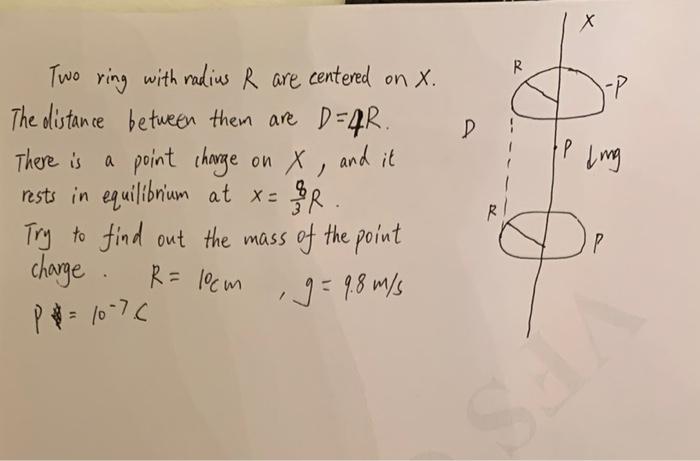 Two ring with radius R are centered on X.
The distance between them are D=4R.
There is a point charge on X, and it
rests in equilibrium at x= 8/3 R.
Try to find out the mass of the point
charge. R= 10cm , g= 9.8 m/s
P = 10^-7 C
X
R
-P
D
P ↓mg
R
P
VFS